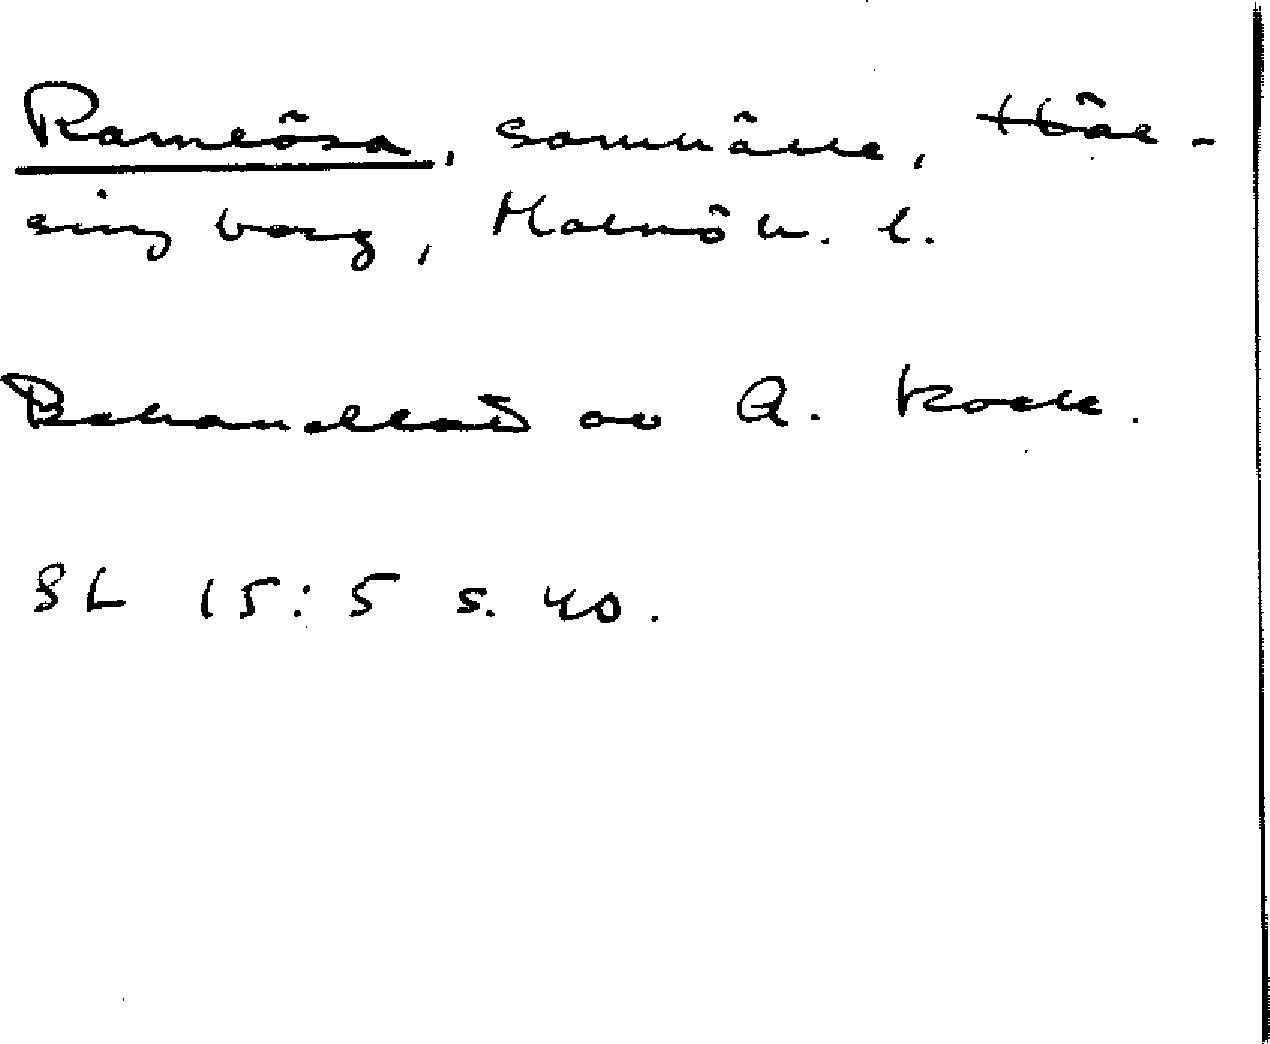 Ramlösa, samhälle, Häl-
singborg, Malmöh. l.
Behandlat av A. Kock.
SL 15:5 s. 40.